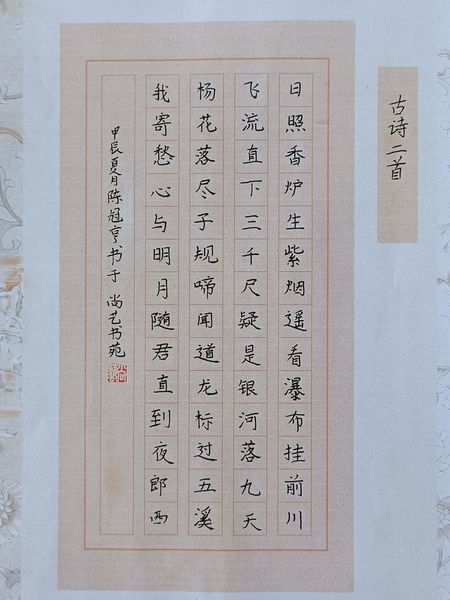 古诗二首
日照香炉生紫烟遥看瀑布挂前川
飞流直下三千尺疑是银河落九天
杨花落尽子规啼闻道龙标过五溪
我寄愁心与明月随君直到夜郎西
甲辰夏月陈冠亨书于尚艺书苑